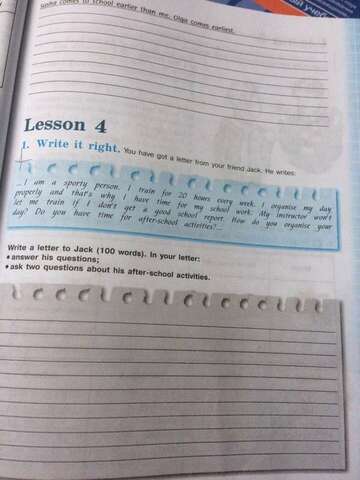 Sasha comes to school earlier than me. Olga comes earliest.
Lesson 4
1. Write it right. You have got a letter from your friend Jack. He writes:
... I am a sporty person. I train for 20 hours every week. I organise my day
properly and that's why I have time for my school work. My instructor won't
let me train if I don't get a good school report. How do you organise your
day? Do you have time for after-school activities?...
Write a letter to Jack (100 words). In your letter:
• answer his questions;
• ask two questions about his after-school activities.